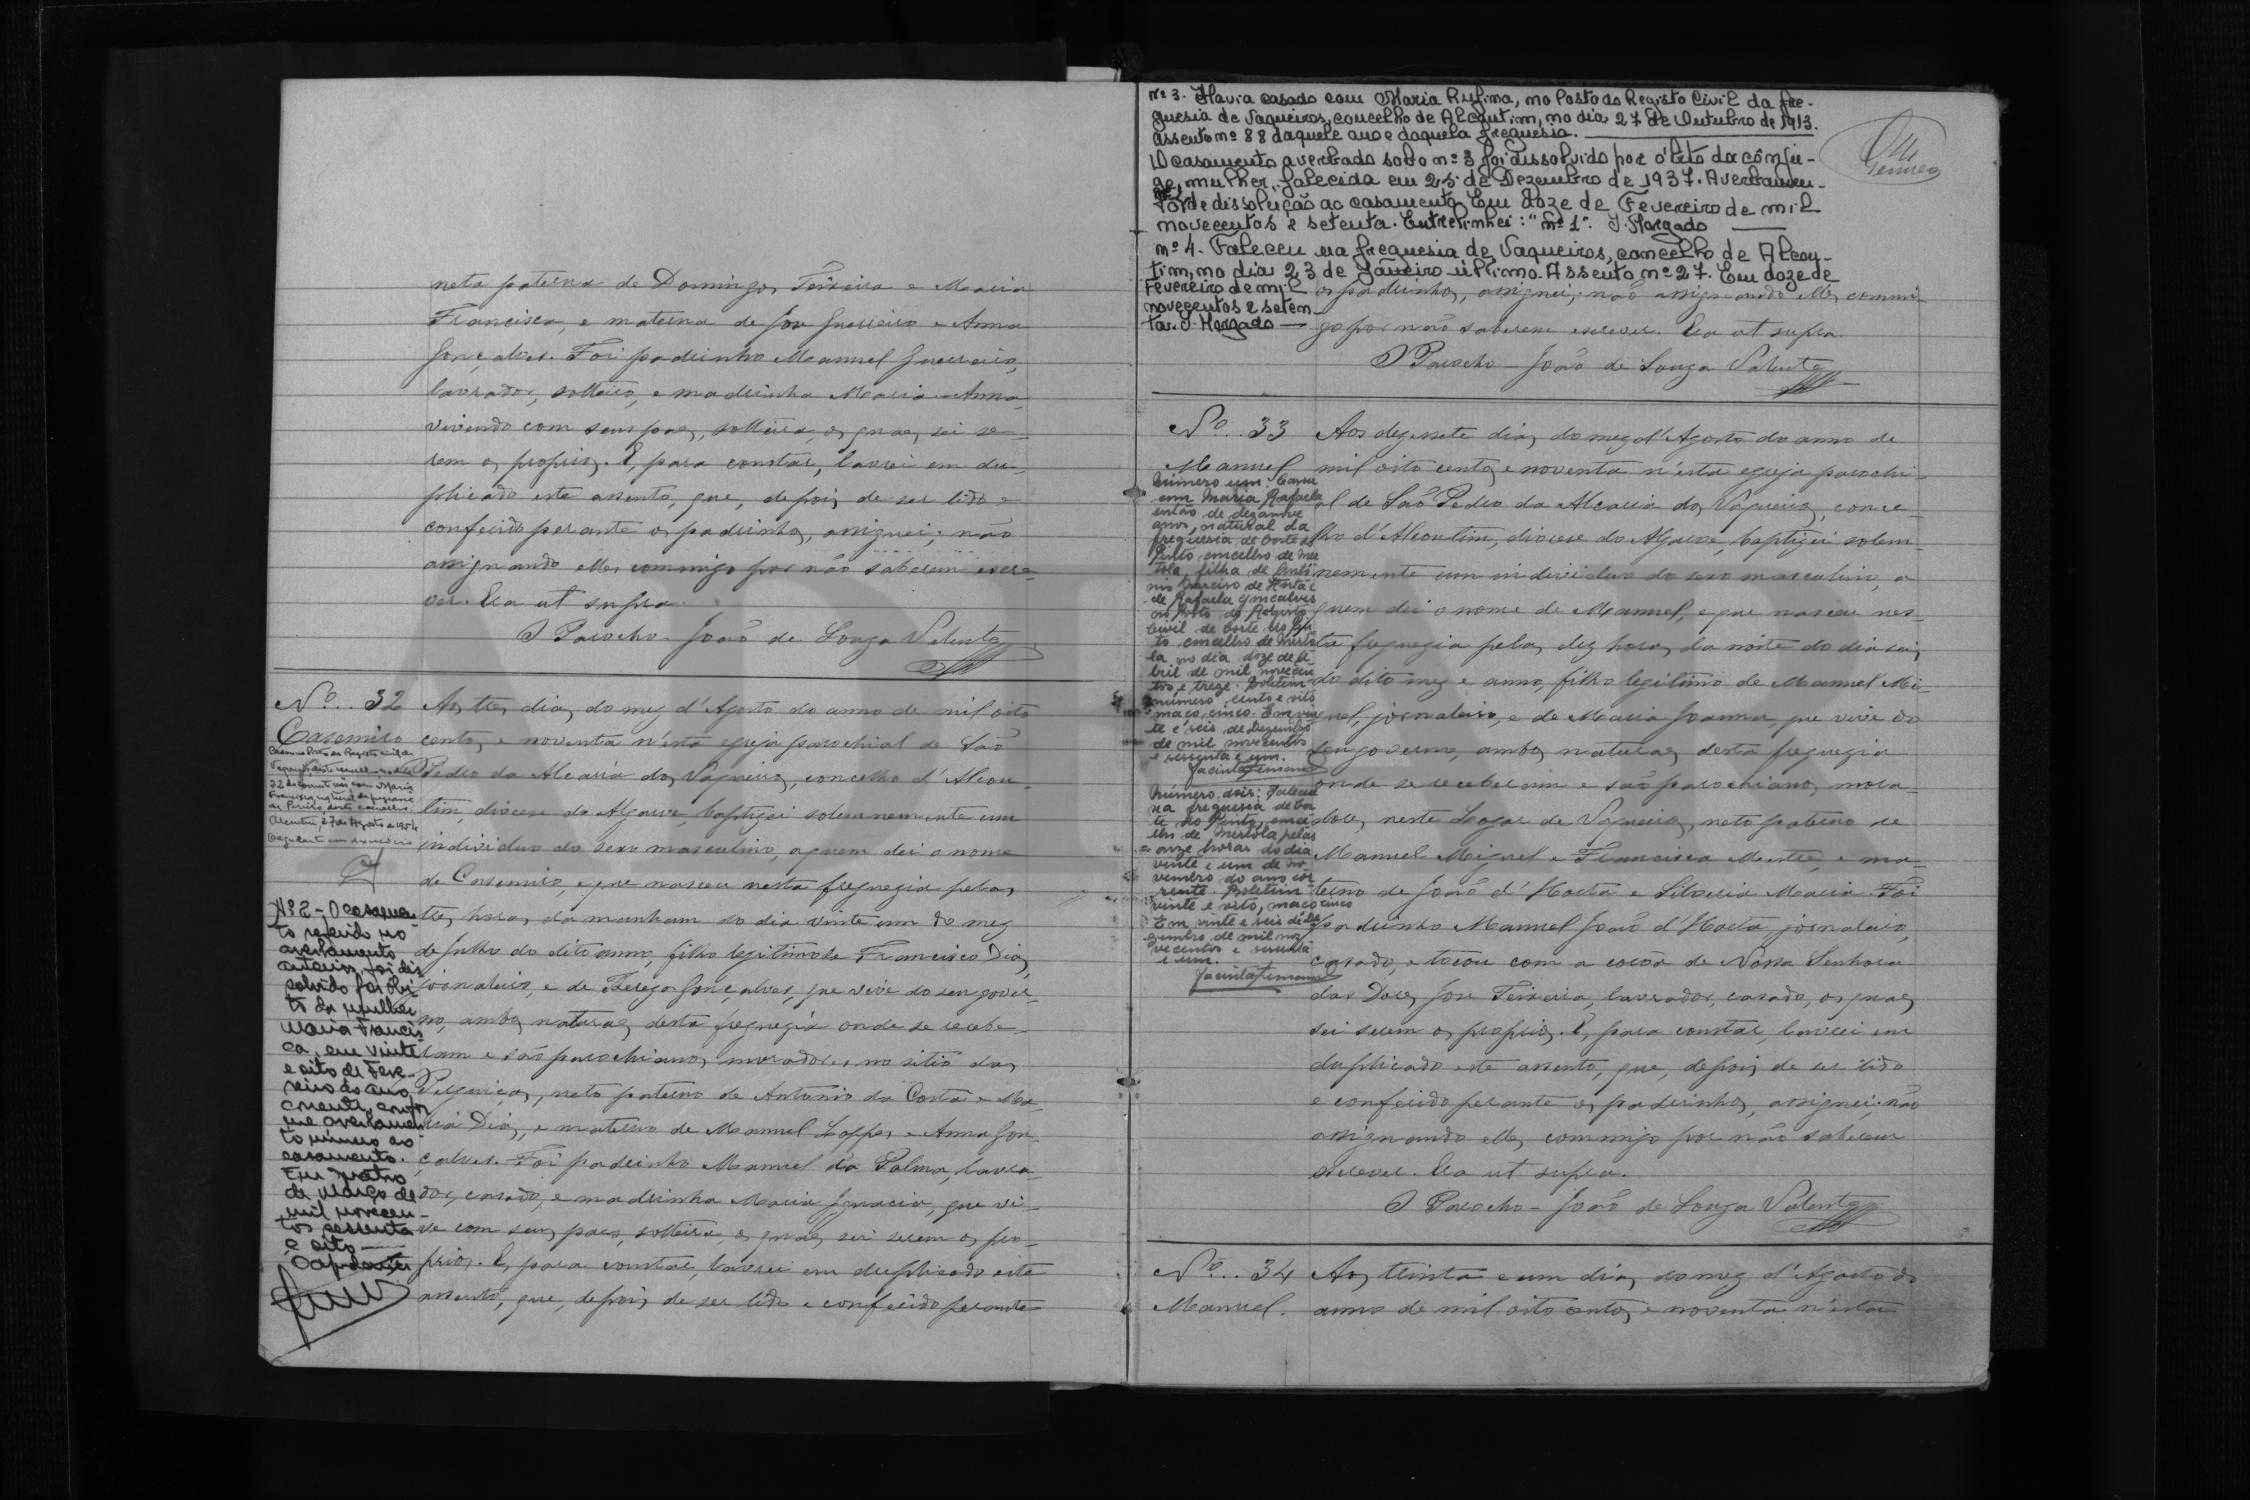 neta paterna de Domingos Teixeira e Maria
Francisca, e materna de José Guerreiro e Anna
Gonçalves. Foi padrinho Manuel Guerreiro,
lavrador, solteiro, e madrinha Maria Anna,
vivendo com seus paes, solteira, os quaes sei se-
rem os proprios. E, para constar, lavrei em du-
plicado este assento, que, depois de ser lido e
conferido perante os padrinhos, assignei; não
assignando elles commigo por não saberem escre-
ver. Era ut supra.
O Parocho - João de Souza Valente
Nº. 32
Casemiro
22 do corrente mês com Maria
Francisca natural da freguesia
Nº 2 - O casamen-
to referido no
averbamento
anterior, foi dis
solvido por óbi-
to da mulher
Maria Francis
ca, em vinte
e oito de Feve-
reiro do ano
corrente, confor
me averbamen-
to número ao
casamento.
Em quatro
de Março de
mil novecen-
tos sessenta
e oito
Aos tres dias do mez d'Agosto do anno de mil oito
centos e noventa n'esta egreja parochial de São
Pedro da Alcaria dos Vaqueiros, concelho d'Alcou-
tim, diocese do Algarve, baptizei solemnemente um
individuo do sexo masculino, a quem dei o nome
de Casemiro, e que nasceu nesta freguezia pelas
tres horas da manham do dia vinte um do mez
de Julho do dito anno, filho legitimo de Francisco Dias,
jornaleiro, e de Thereza Gonçalves, que vive do seu gover-
no, ambos naturaes desta freguezia onde se recebe-
ram e são parochianos, moradores no sitio das
neto paterno de Antonio da Costa e Ma-
ria Dias, e materno de Manuel Lopes e Anna Gon-
çalves. Foi padrinho Manuel da Palma, lavra-
dor, casado, e madrinha Maria Ignacia, que vi-
ve com seus paes, solteira, os quaes sei serem os pro-
prios. E, para constar, lavrei em duplicado este
assento, que, depois de ser lido e conferido perante
nº 3. Havia casado com Maria Rufina, no Posto do Registo Civil da fre-
guesia de Vaqueiros, concelho de Alcoutim, no dia 27 de Outubro de 1913.
Assento nº 88 daquele ano e daquela freguesia.
O casamento averbado sob o nº 3 foi dissolvido por óbito da cônju-
ge, mulher, falecida em 25 de Dezembro de 1937. Averbamen-
nº 1
to de dissolução ao casamento. Em doze de Fevereiro de mil
novecentos e setenta. Entrelinhei: "nº 1". J. Morgado
nº 4. Faleceu na freguesia de Vaqueiros, concelho de Alcou-
tim, no dia 23 de Janeiro último. Assento nº 27. Em doze de
Fevereiro de mil
novecentos e seten-
ta. J. Morgado
os padrinhos, assignei; não assignando elles commi-
go por não saberem escrever. Era ut supra.
O Parocho - João de Souza Valente
Nº. 33
Manuel
Número um: Casou
com Maria Rafaela
então de dezanove
anos, natural da
freguesia de Corte do
Pinto, concelho de Mér
tola, filha de
de Rafaela Gonçalves
no Posto do Registo
Civil de Corte do Pin
to, concelho de Mérto
la, no dia doze de A-
bril de mil novecen
tos e treze. Boletim
número cento e oito
maço cinco. Em vin
te e seis de Dezembro
de mil novecentos
e sessenta e um.
Número dois: Faleceu
na freguesia de Cor
te do Pinto, conce
lho de Mértola, pelas
onze horas do dia
vinte e um de No-
vembro do ano cor
rente. Boletim
vinte e oito, maço cinco
Em vinte e seis de De
zembro de mil no
vecentos e sessenta
e um.
Aos dezesete dias do mez d'Agosto do anno de
mil oito centos e noventa n'esta egreja parochi-
al de São Pedro da Alcaria dos Vaqueiros, conce-
lho d'Alcoutim, diocese do Algarve, baptizei solem-
nemente um individuo do sexo masculino, a
quem dei o nome de Manuel, e que nasceu nes-
ta freguezia pelas dez horas da noite do dia seis
do dito mez e anno, filho legitimo de Manuel Mi-
guel, jornaleiro, e de Maria Joanna, que vive do
seu governo, ambos naturaes desta freguezia
onde se receberam e são parochianos, mora-
dores neste Logar de Vaqueiros, neto paterno de
Manuel Miguel e Francisca Mestre, e ma-
terno de João d'Horta e Silveria Maria. Foi
padrinho Manuel João d'Horta, jornaleiro,
casado, e tocou com a corôa de Nossa Senhora
das Dores José Teixeira, lavrador, casado, os quaes
sei serem os proprios. E, para constar, lavrei em
duplicado este assento, que, depois de ser lido
e conferido perante os padrinhos, assignei; não
assignando elles commigo por não saberem
escrever. Era ut supra.
O Parocho - João de Souza Valente
Nº. 34
Manuel.
Aos trinta e um dias do mez d'Agosto do
anno de mil oito centos e noventa n'esta